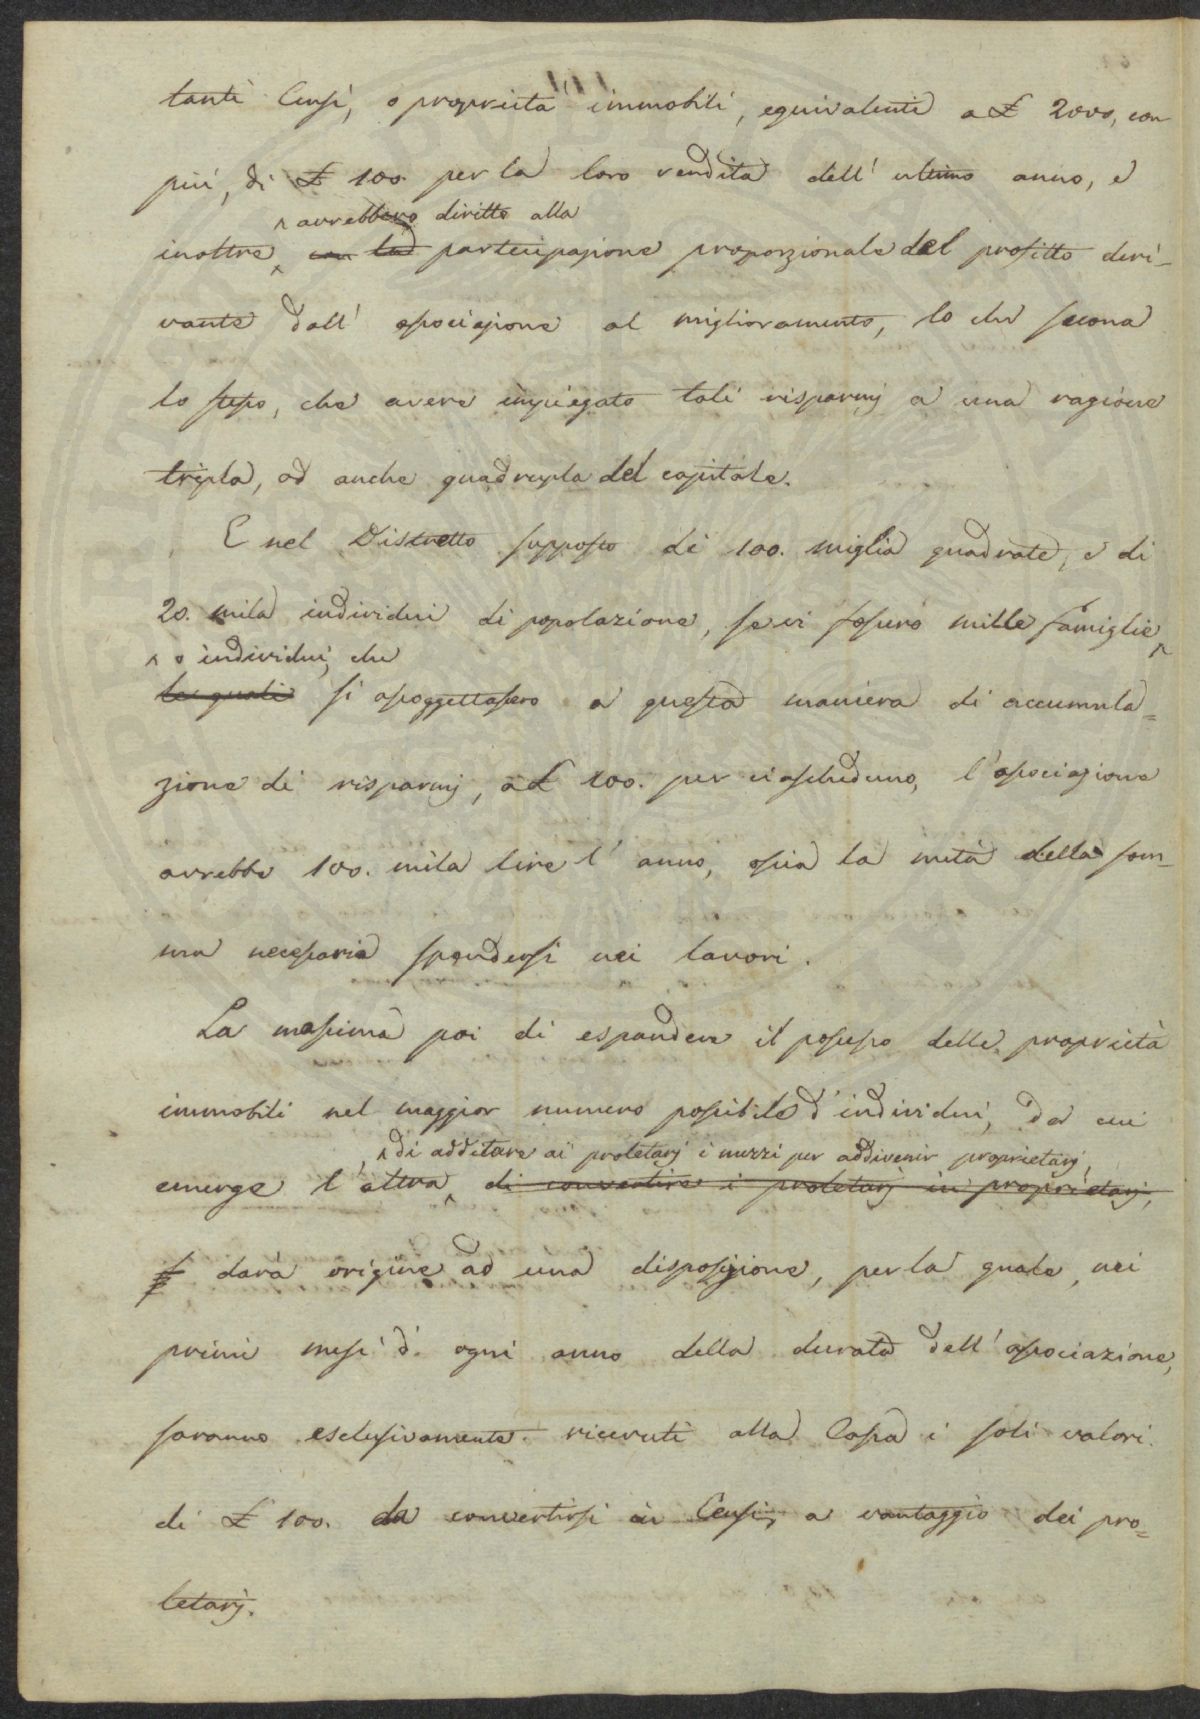 tanti Censi, o proprietà immobili, equivalenti a £ 2000, con
più, di £ 100. per la loro rendita dell' ultimo anno, e
^ avrebbero diritto alla
inoltre ^ con la partecipazione proporzionale del profitto deri-
vante dall' associazione al miglioramento, lo che suona
lo stesso, che avere impiegato tali risparmj a una ragione
tripla, od anche quadrupla del capitale.
E nel Distretto supposto di 100. miglia quadrate, e di
20. mila individui di popolazione, se vi fossero mille famiglie ^
^ o individui, che
le quali si assoggettassero a questa maniera di accumula=
zione di risparmj, a £ 100. per ciascheduno, l'associazione
avrebbe 100. mila lire l' anno, ossia la metà della som-
ma necessaria spendersi nei lavori.
La massima poi di espandere il possesso delle proprietà
immobili nel maggior numero possibile d'individui, da cui
^ di additare ai proletarj i mezzi per addivenir proprietarj,
emerge l'altra ^ di convertire i proletarj in proprietarj,
darà origine ad una disposizione, per la quale, nei
primi mesi d' ogni anno della durata dell' associazione,
saranno esclusivamente ricevuti alla Cassa i soli valori
di £ 100. da convertirsi in Censi, a vantaggio dei pro=
letarj.